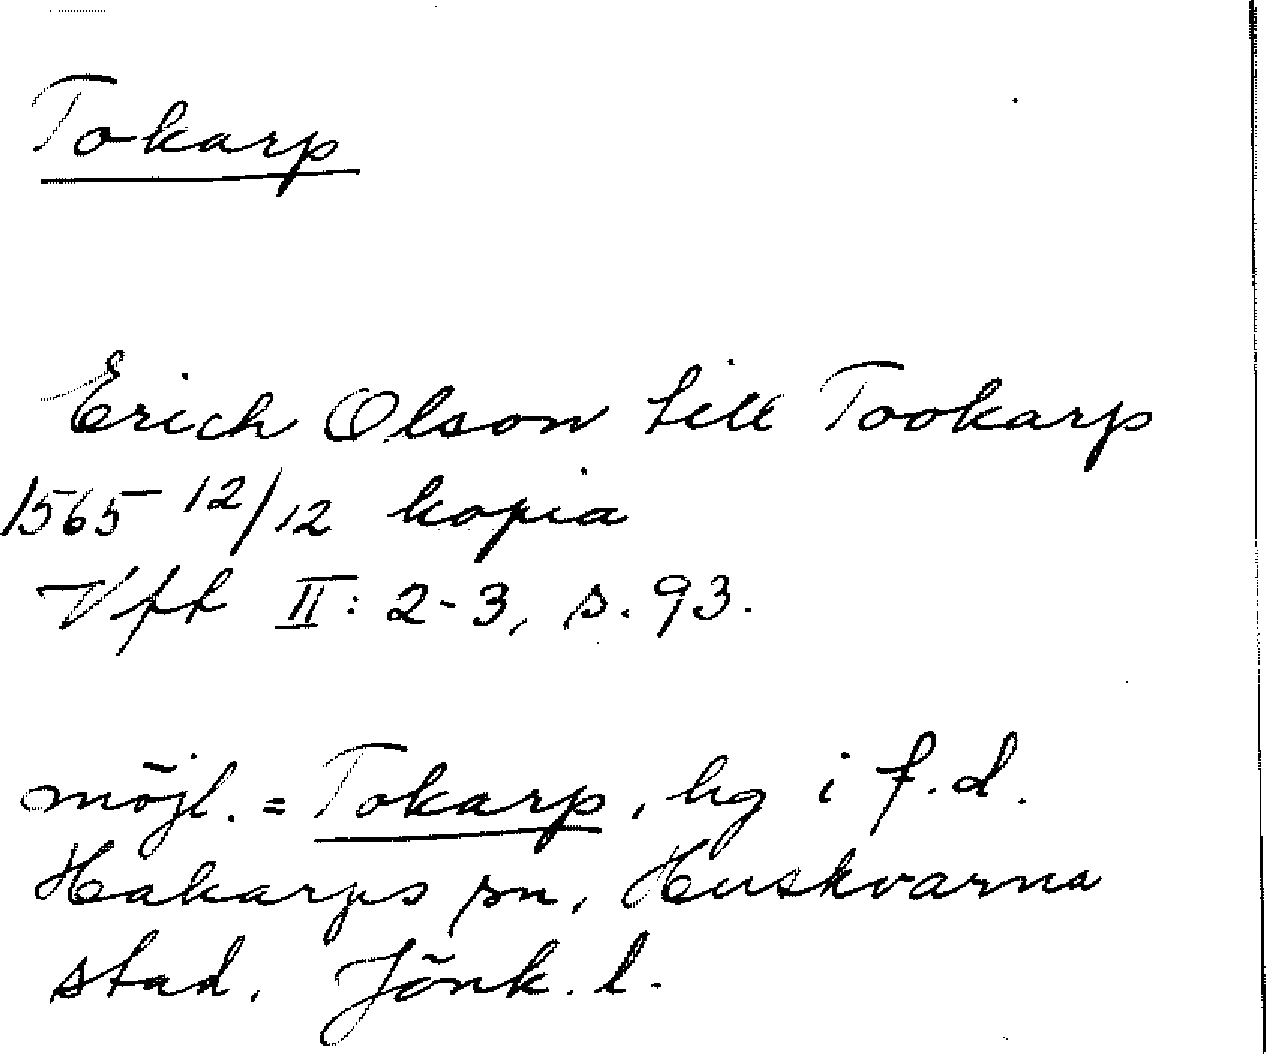 Tokarp
Erich Olson till Tookarp
1565 12/12 kopia
Vft II: 2-3, s. 93.
möjl. = Tokarp, hg i f.d.
Hakarps sn, Huskvarna
stad. Jönk. l.